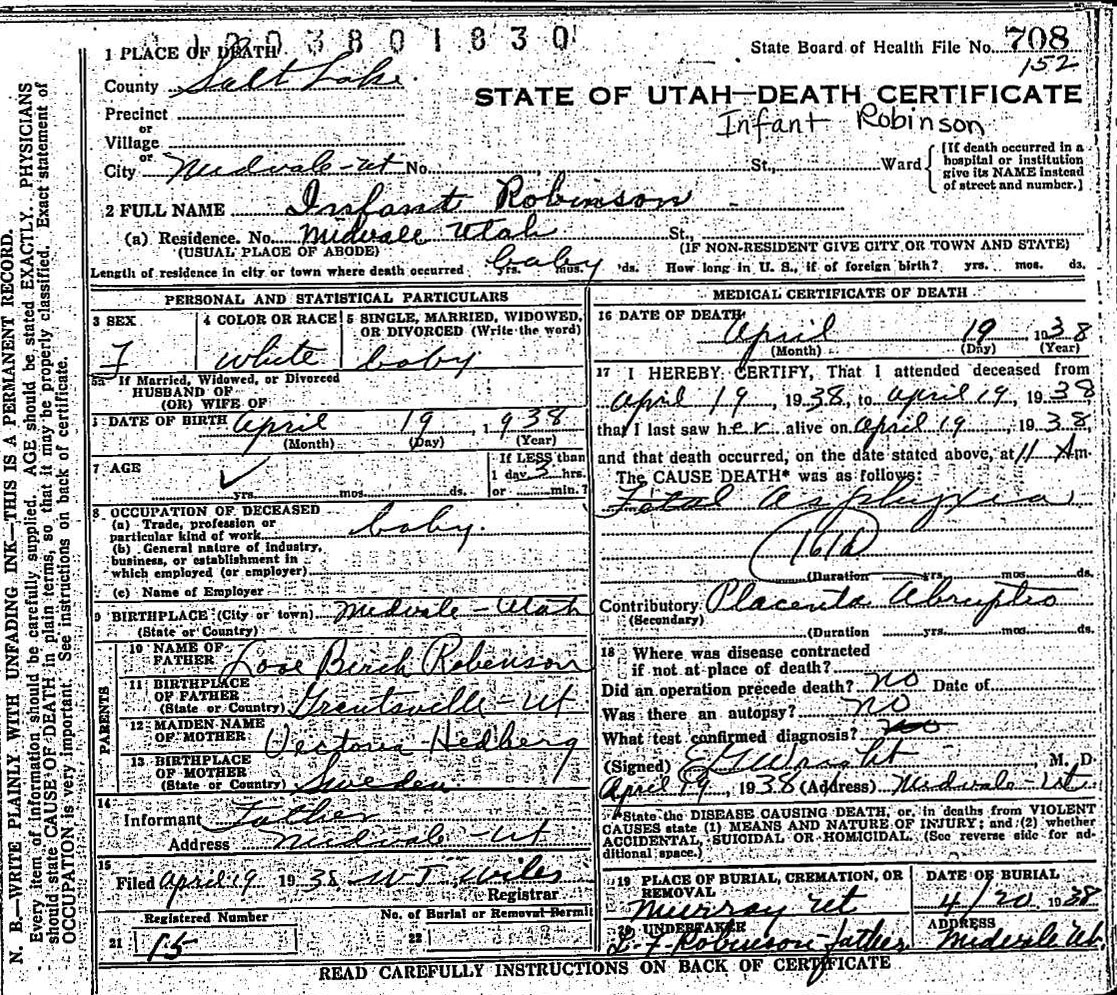 1003801830
1 PLACE OF DEATH
State Board of Health File No. 708
152
County Salt Lake
STATE OF UTAH—DEATH CERTIFICATE
Precinct
Infant Robinson
or
Village
or
City Midvale-Ut No. St., Ward
{If death occurred in a
hospital or institution
give its NAME instead
of street and number.}
2 FULL NAME Infant Robinson
(a) Residence. No. Midvale Utah St.,
(USUAL PLACE OF ABODE) (IF NON-RESIDENT GIVE CITY OR TOWN AND STATE)
Length of residence in city or town where death occurred baby yrs. mos. ds. How long in U. S., if of foreign birth? yrs. mos. ds.
PERSONAL AND STATISTICAL PARTICULARS
3 SEX 4 COLOR OR RACE 5 SINGLE, MARRIED, WIDOWED,
OR DIVORCED (Write the word)
F White baby
5a If Married, Widowed, or Divorced
HUSBAND OF
(OR) WIFE OF
DATE OF BIRTH April 19 1938
(Month) (Day) (Year)
7 AGE If LESS than
1 day 3 hrs.
yrs. mos. ds. or min.?
8 OCCUPATION OF DECEASED
(a) Trade, profession or
particular kind of work baby.
(b) General nature of industry,
business, or establishment in
which employed (or employer)
(c) Name of Employer
9 BIRTHPLACE (City or town) Midvale-Utah
(State or Country)
PARENTS
10 NAME OF
FATHER Birch Robinson
11 BIRTHPLACE
OF FATHER
(State or Country) Grantsville-Ut
12 MAIDEN NAME
OF MOTHER Victoria Hedberg
13 BIRTHPLACE
OF MOTHER
(State or Country) Sweden.
14
Informant Father
Address Midvale-Ut
15
Filed April 19 1938 W.T. Wiles
Registrar
Registered Number No. of Burial or Removal Permit
21 15 22
MEDICAL CERTIFICATE OF DEATH
16 DATE OF DEATH
April 19 1938
(Month) (Day) (Year)
17 I HEREBY CERTIFY, That I attended deceased from
April 19, 1938, to April 19, 1938,
that I last saw her alive on April 19, 1938,
and that death occurred, on the date stated above, at 11 Am.
The CAUSE DEATH* was as follows:
Fetal Asphyxia
161a
(Duration yrs. mos. ds.
Contributory Placenta Abruptio
(Secondary)
(Duration yrs. mos. ds.
18 Where was disease contracted
if not at place of death?
Did an operation precede death? no Date of
Was there an autopsy? no
What test confirmed diagnosis? no
(Signed) M. D.
April 19, 1938 (Address) Midvale-Ut.
*State the DISEASE CAUSING DEATH, or, in deaths from VIOLENT
CAUSES state (1) MEANS AND NATURE OF INJURY; and (2) whether
ACCIDENTAL, SUICIDAL OR HOMICIDAL. (See reverse side for ad-
ditional space.)
19 PLACE OF BURIAL, CREMATION, OR
REMOVAL
DATE OF BURIAL
Murray Ut 4/20 1938
20 UNDERTAKER ADDRESS
L.F. Robinson-father Midvale Ut.
READ CAREFULLY INSTRUCTIONS ON BACK OF CERTIFICATE
N. B.—WRITE PLAINLY WITH UNFADING INK—THIS IS A PERMANENT RECORD.
Every item of information should be carefully supplied. AGE should be stated EXACTLY. PHYSICIANS
should state CAUSE OF DEATH in plain terms, so that it may be properly classified. Exact statement of
OCCUPATION is very important. See instructions on back of certificate.